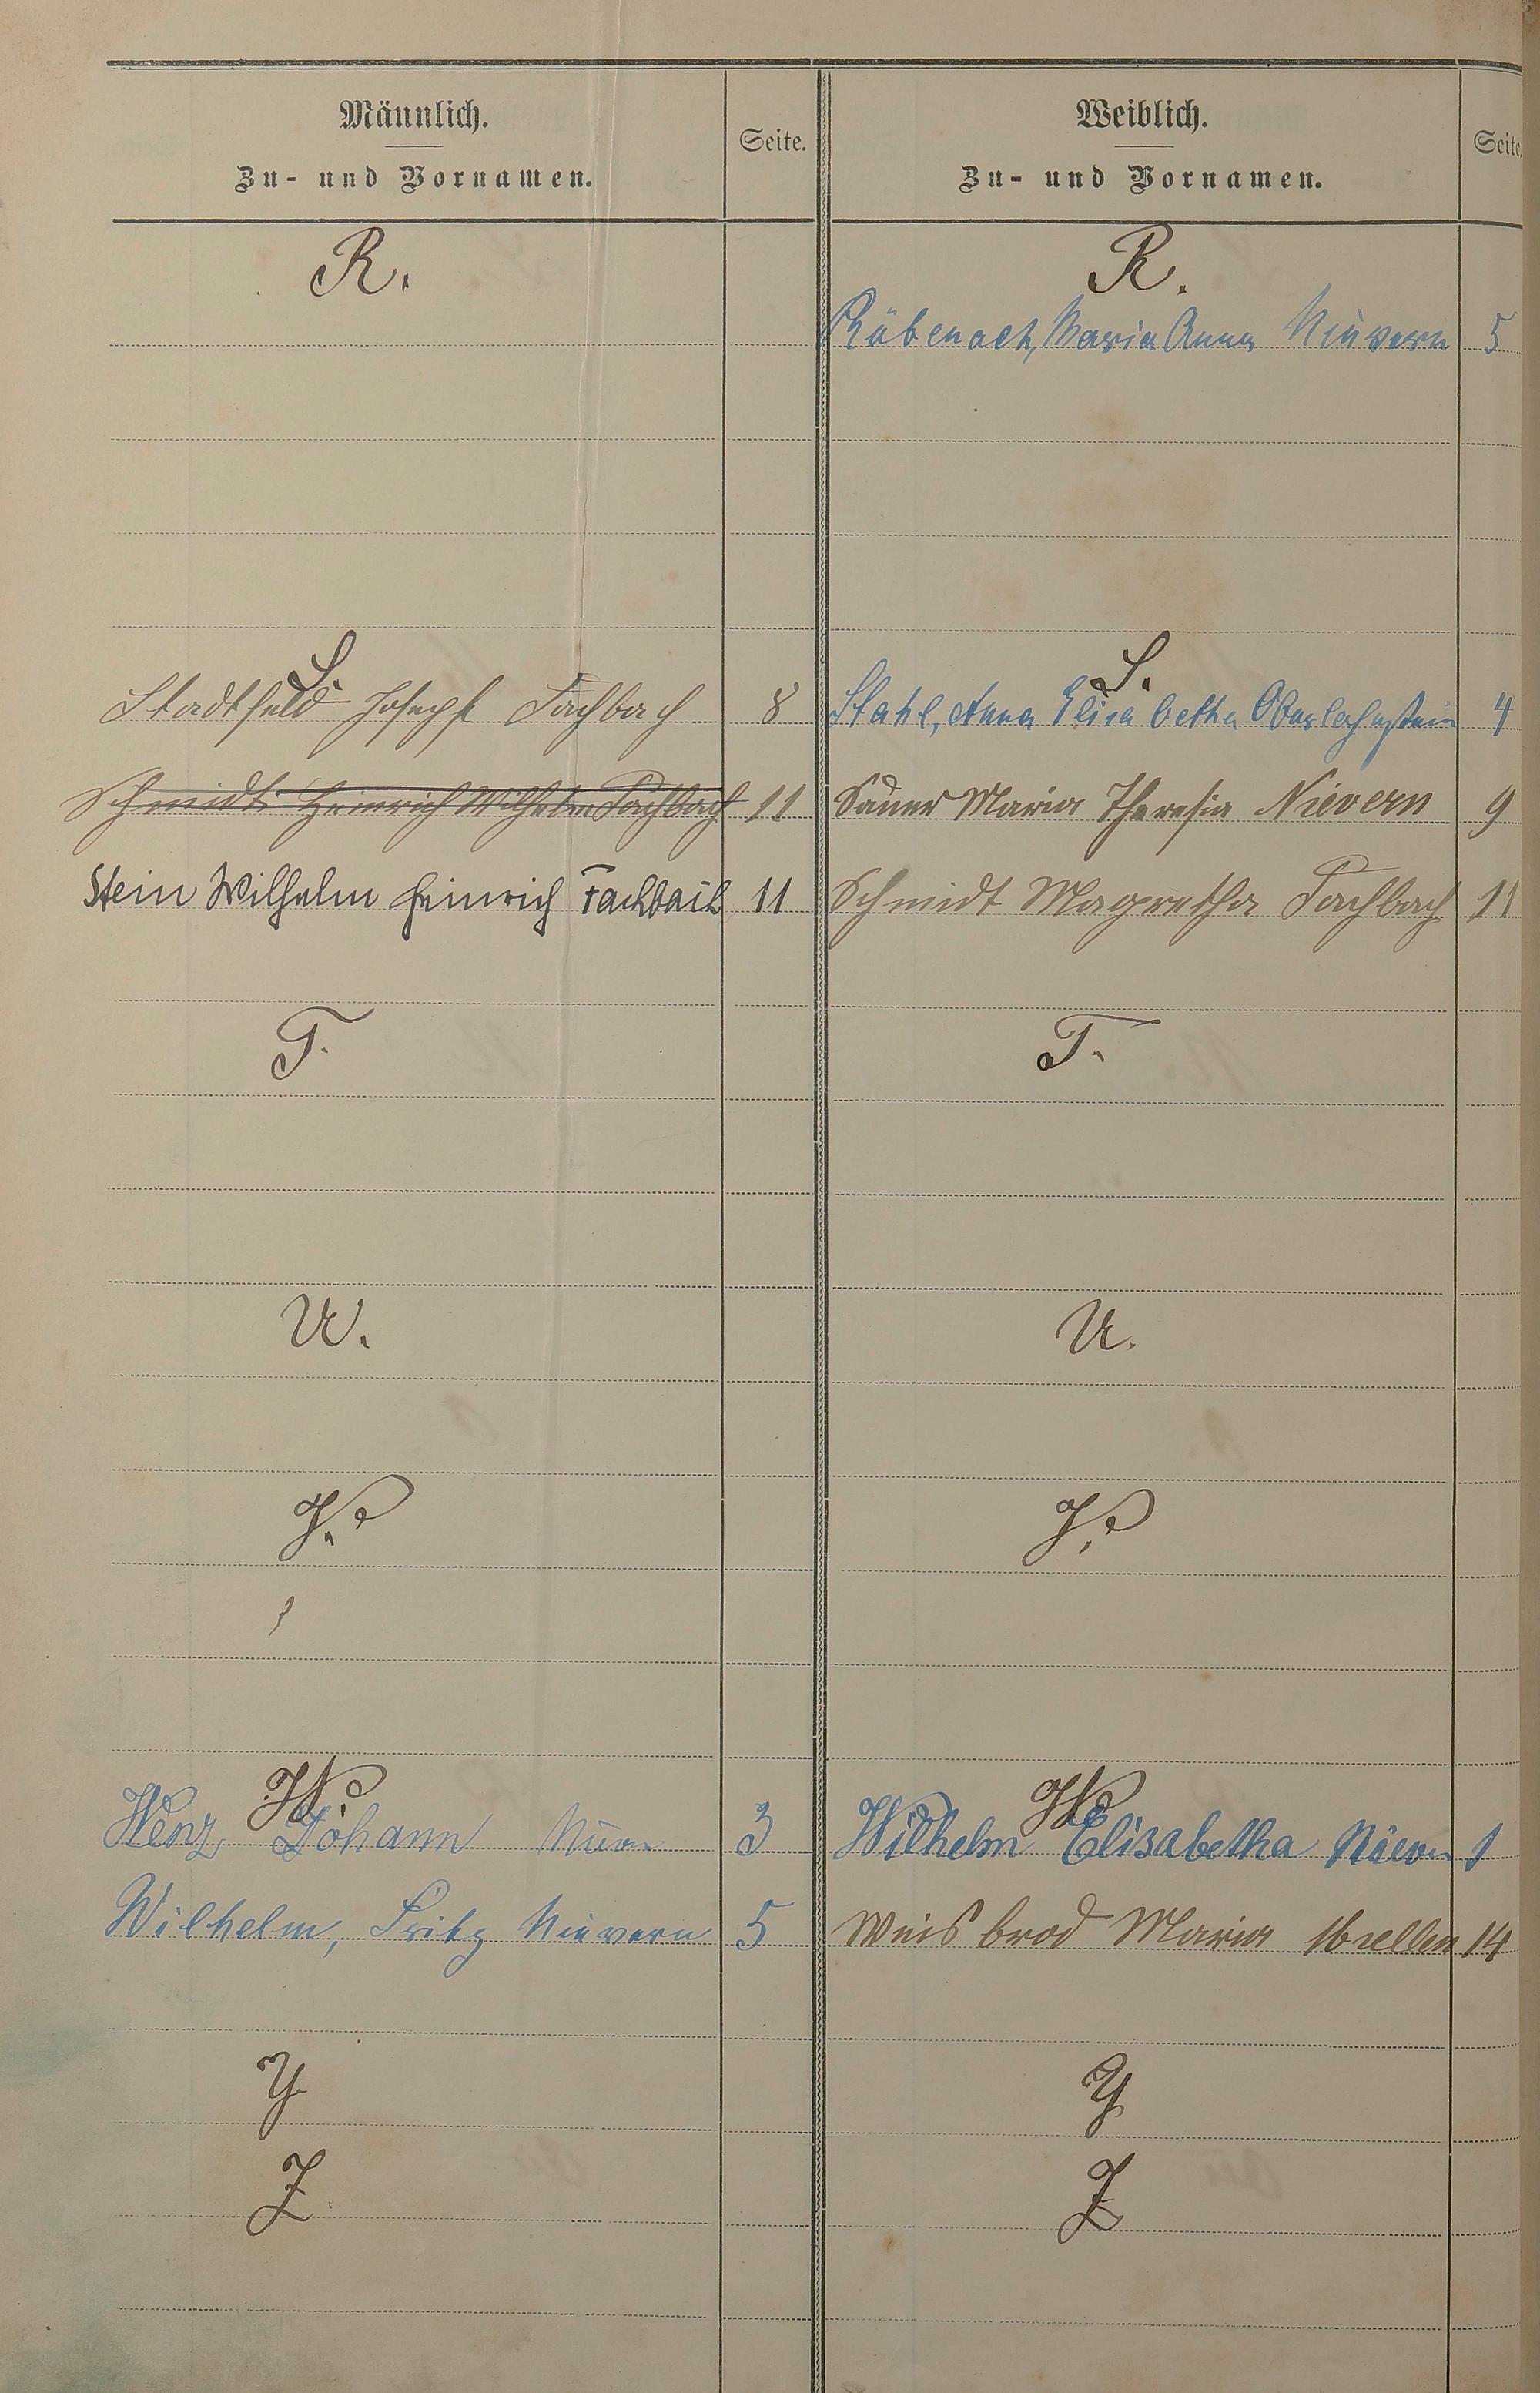 Männlich.
Zu- und Vornamen.
Seite.
Weiblich.
Zu- und Vornamen.
Seite
R.
R.
Rübenach, Maria Anna Nievern 5
S.
S.
Stadtfeld Joseph Fachbach 8
Stahl, Anna Elisabetha Oberlahnstein 4
Schmidt Heinrich Wilhelm Fachbach 11
Sauer Maria Theresia Nievern 9
Stein Wilhelm Heinrich Fachbach 11
Schmidt Magretha Fachbach 11
T.
T.
U.
U.
V.
V.
W.
W.
Wenz, Johann 3
Wilhelm Elisabetha Nievern 1
Wilhelm, Fritz Nievern 5
Weisbrod Maria 14
Y
Y
Z
Z